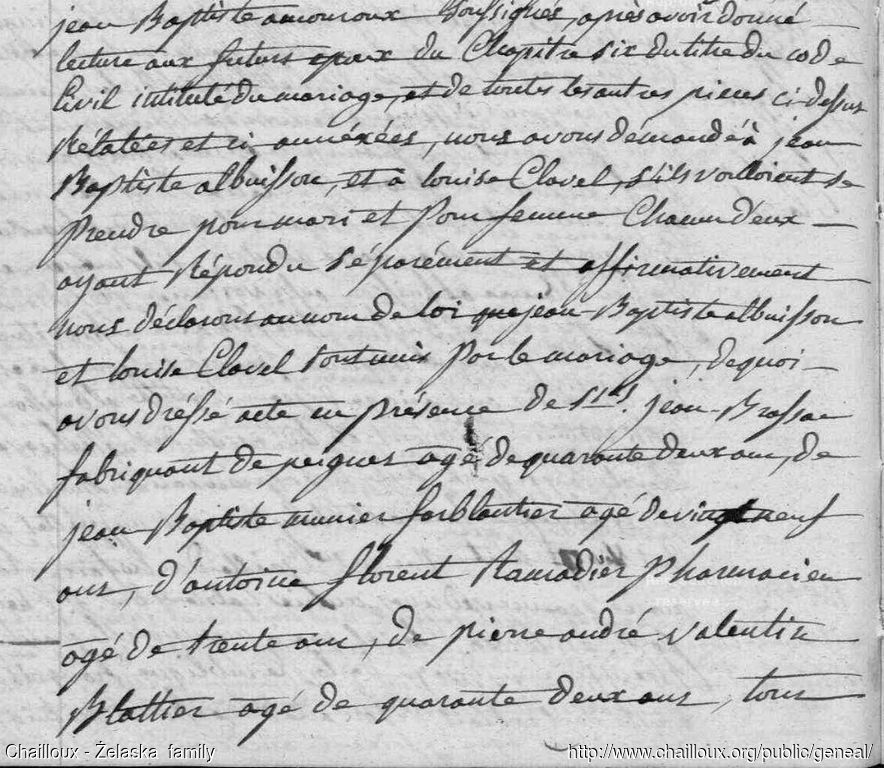 jean Baptiste amouroux Soussignés, après avoir donné
lecture aux futurs epoux du Chapitre six du titre du code
Civil intitulé du mariage, et de toutes les autres pieces ci-dessus
Rélatées et ci annéxées, nous avons demandé à jean
Baptiste albuisson, et à louise Clavel, s'ils voulloient se
prendre pour mari et pour femme Chacun d'eux
ayant Répondu séparément et affirmativement
nous déclarons au nom de loi que jean-Baptiste albuisson
et louise Clavel sont unis par le mariage, de quoi
avons dréssé acte en présence de Srs. jean
fabriquant de peignes agé de quarante deux ans, de
jean Baptiste munier ferblantier agé de vingt neuf
ans, d'antoine florent Ramadier pharmacien
agé de trente ans, de pierre andré valentin
Blattier agé de quarante deux ans, tous
Chailloux - Żelaska family
http://www.chailloux.org/public/geneal/